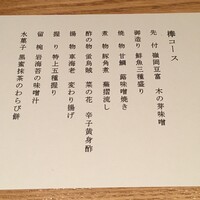 欅コース
先付 嶺岡豆富 木の芽味噌
御造り 鮮魚三種盛り
焼物 甘鯛 蕗味噌焼き
煮物 豚角煮 蕪摺流し
酢の物 蛍烏賊 菜の花 辛子黄身酢
揚物 車海老 変わり揚げ
握り 特上五種握り
留椀 岩海苔の味噌汁
水菓子 黒蜜抹茶のわらび餅